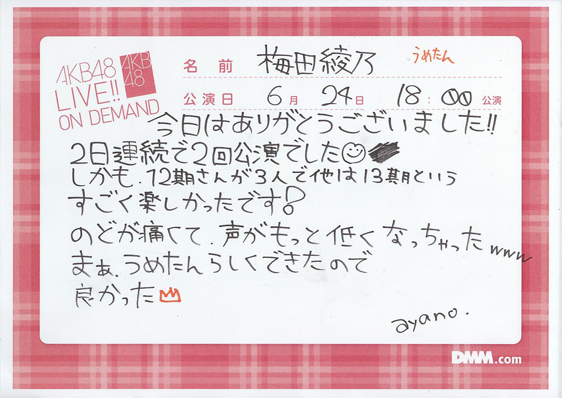 AKB48
LIVE!!
ON DEMAND
AKB
48
名前 梅田綾乃 うめたん
公演日 6月 24日 18:00 公演
今日はありがとうございました!!
2日連続で2回公演でした
しかも、12期さんが3人で他は13期という
すごく楽しかったです!
のどが痛くて、声がもっと低くなっちゃったwww
まぁ、うめたんらしくできたので
良かった
ayano.
DMM.com